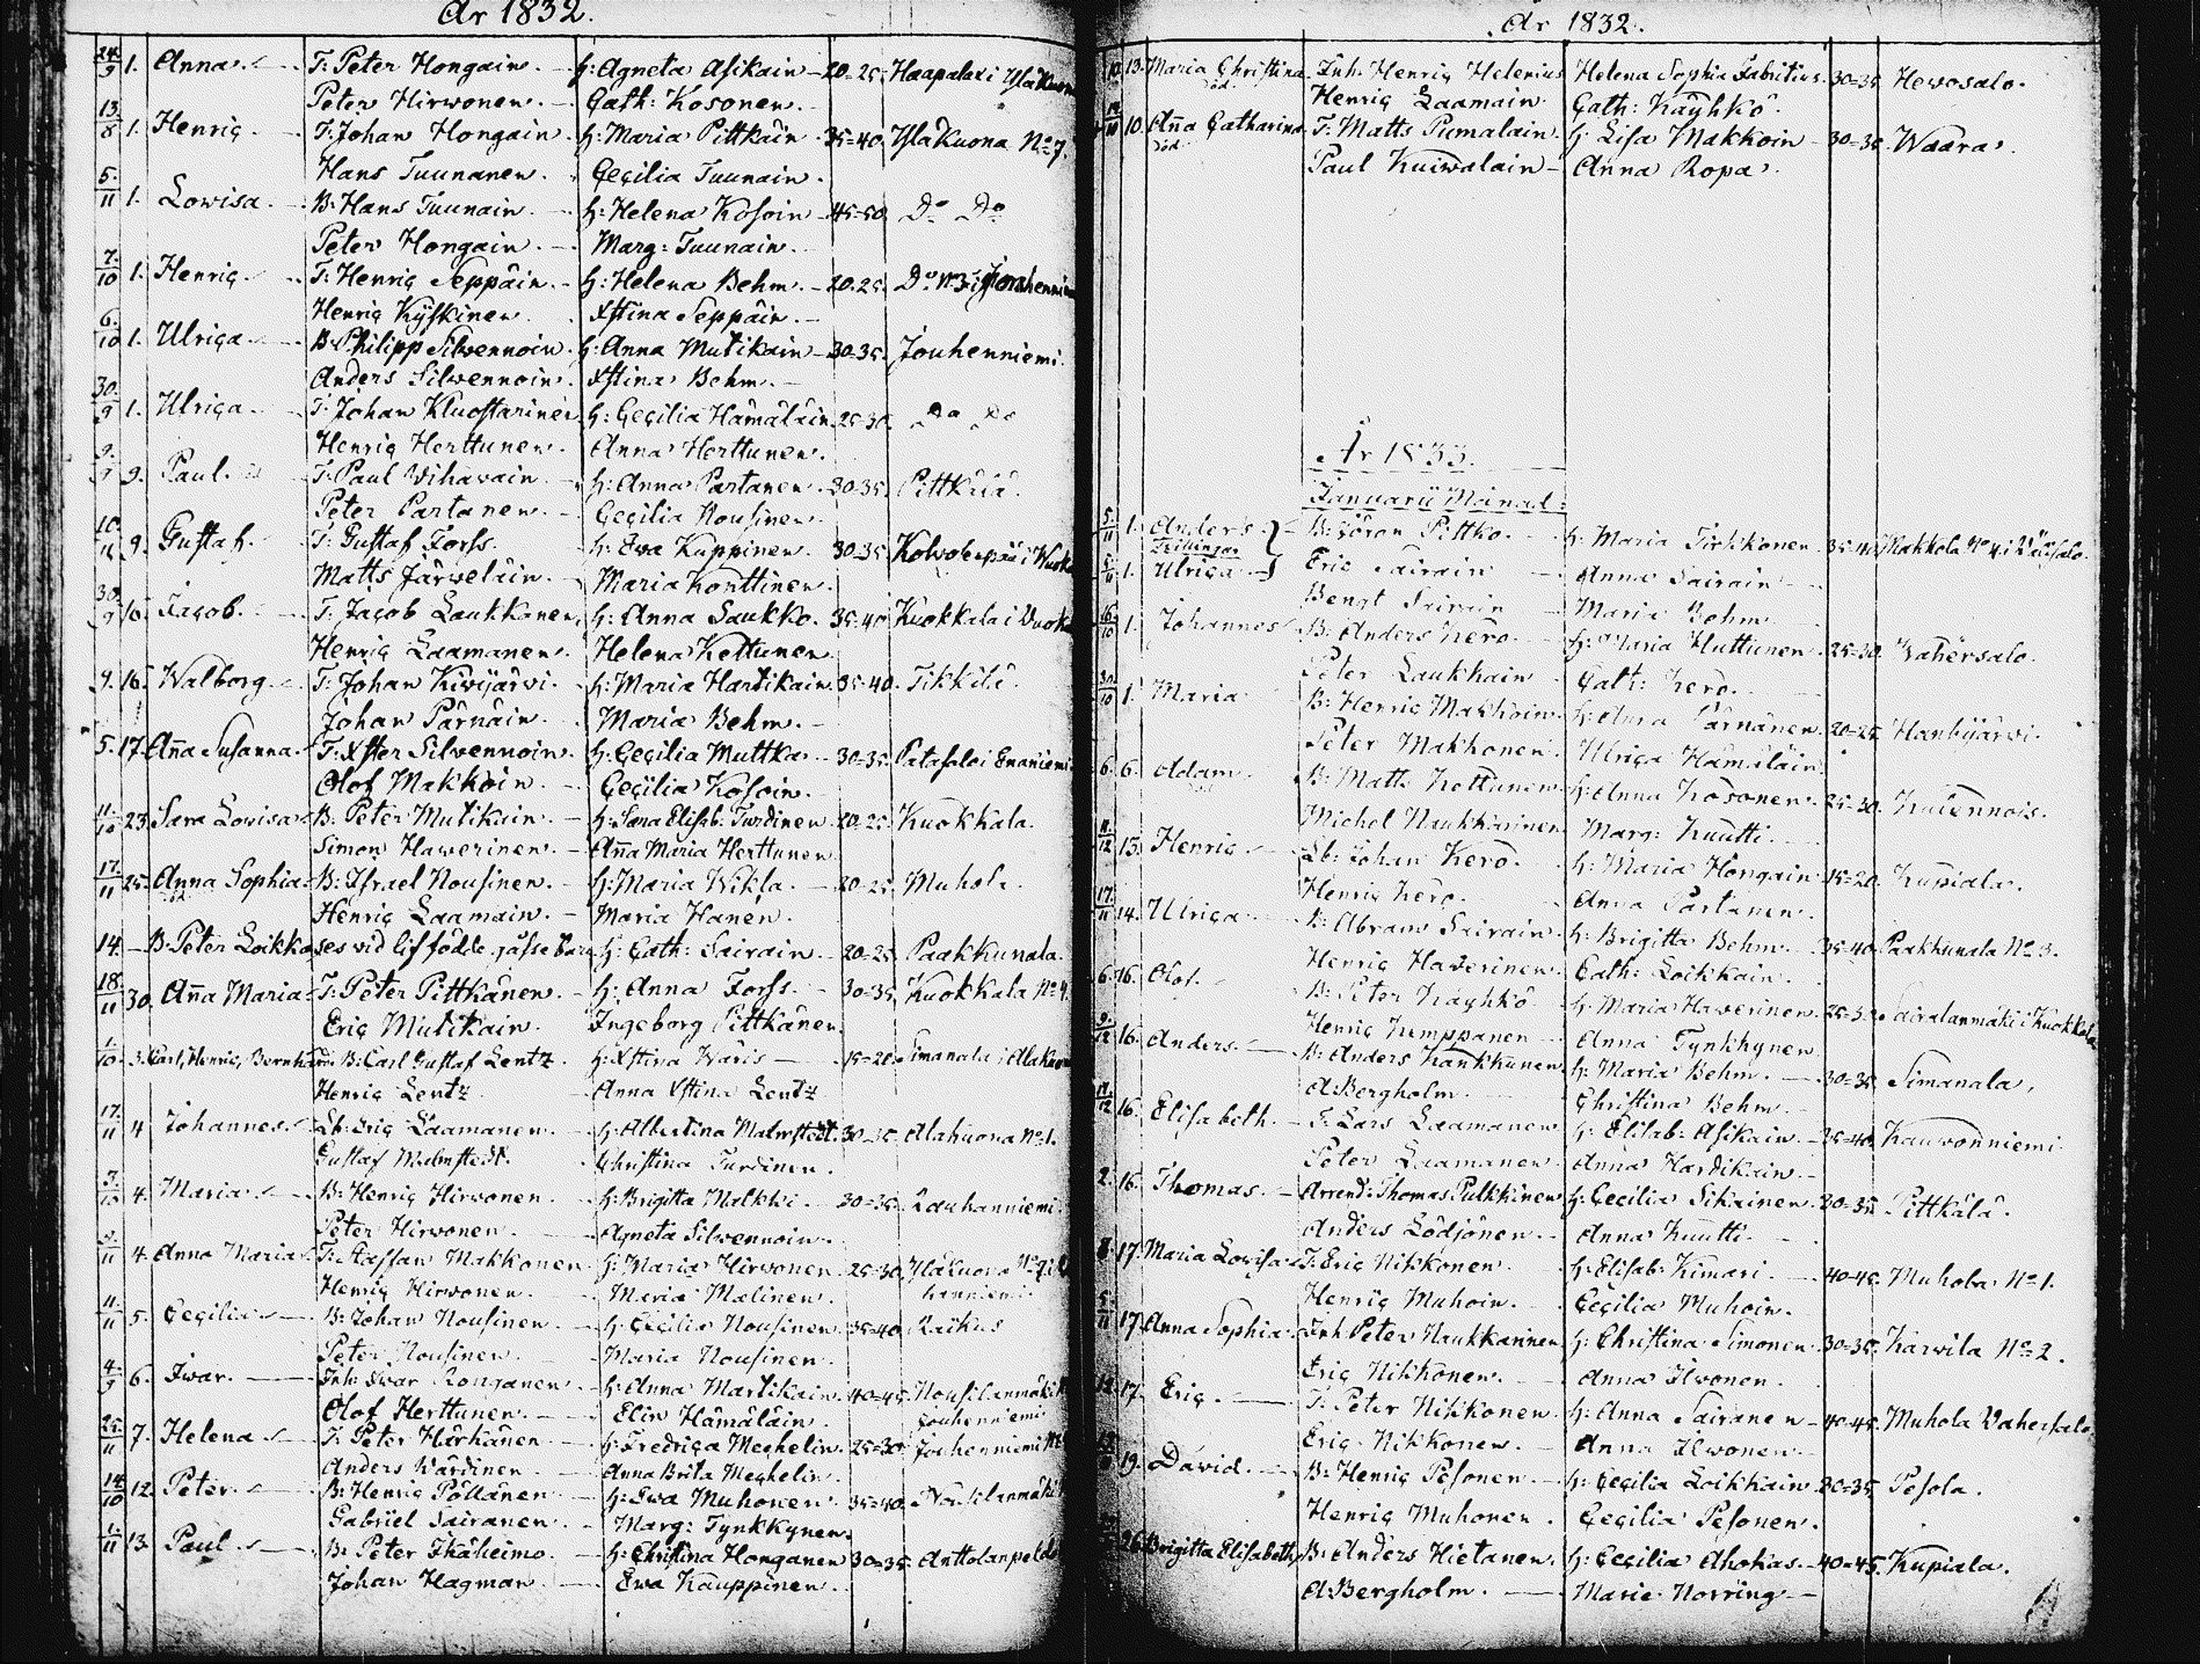 År 1832.
24/9 1. Anna. T: Peter Hongain. H: Agneta Asikain 20-25. Haapalax i Yläkuona
Peter Hirwonen. Cath: Kosonen.
13/8 1. Henric. T: Johan Hongain. H: Maria Pittkäin 35=40. Yläkuona No 7.
Hans Tuunanen. Cecilia Tuunain.
5/11 1. Lowisa. B: Hans Tuunain. H: Helena Kosoin 45-50. Do Do
Peter Hongain. Marg: Tuunain.
7/10 1. Henric. T: Henric Seppäin. H: Helena Behm. 20.25. Do No 3 i Jouhenniemi
Henric Kyskinen. Xstina Seppäin.
6/10 1. Ulrica B: Philipp Silvennoin. H: Anna Mutikain 30-35. Jouhenniemi.
Anders Silvennoin. Xstina Behm.
30/9 1. Ulrica. T: Johan Kluostarinen H: Cecilia Hämäläin 25-30. Do Do
Henric Herttunen. Anna Herttunen.
9. Paul. T: Paul Wihavain H: Anna Partanen. 30-35. Pittkälä.
Peter Partanen. Cecilia Nousinen.
10/11 9. Gustaf. T: Gustaf Forss. H: Ewa Kuppinen. 30-35
Matts Järweläin. Maria Konttinen.
30/9 16. Jacob. T: Jacob Laukkanen H: Anna Saukko. 35-40 Kuokkala i
Henric Laamanen. Helena Kettunen.
9. 16. Walborg. T: Johan Kivijärvi. H: Maria Hartikain. 35-40. Tikkilä.
Johan Pärnäin. Maria Behm.
5. 17. Anna Susanna. T: Xster Silvennoin. H: Cecilia Muttka. 30-35. Patasalo i Enaniemi
Olof Makkoin. Cecilia Kosoin.
11/10 23. Sara Lovisa B: Peter Mutikain. H: Sara Elisab. Turdinen 20-25. Kuokkala.
Simon Hawerinen. Anna Maria Herttunen
17/11 25. Anna Sophia. B: Israel Nousinen. H: Maria Wikla. 20-25. Muhola.
död. Henric Laamain. Maria Hanén.
14. B: Peter Loikkases wid lif födde gosse barn H: Cath: Sairain. 20-25. Paakkunala.
18/11 30. Anna Maria T: Peter Pittkänen. H: Anna Forss. 30-35. Kuokkala No 4.
Eric Mutikain. Ingeborg Pittkänen.
1/10 3. Carl, Henric, Bernhard. B: Carl Gustaf Lentz. H: Xstina Waris 15-20. Simanala i Alakuona
Henric Lentz Anna Xstina Lentz
17/11 4 Johannes. Lb: Eric Laamanen. H: Albertina Malmstedt. 30-35. Alakuona No 1.
Gustaf Malmstedt. Christina Turdinen.
3/10 4. Maria B: Henric Hirvonen. H: Brigitta Malkki. 30-35. Lauhanniemi.
Peter Hirvonen. Agneta Silvennoin.
4. Anna Maria. T: Staffan Makkonen. H: Maria Hirvonen. 25-30. Yläkuona No 7
Henric Hirvonen. Maria Malinen.
11/11 5. Cecilia B: Johan Nousinen. H: Cecilia Nousinen 35-40 Raikus
Peter Nousinen. Maria Nousinen.
4/9 6. Iwar. Inh: Iwar Ronganen. H: Anna Martikain. 40-45. Nousilanmäki
Olof Herttunen. Elin Hämäläin. Jouhenniemi
25/11 7. Helena T: Peter Härkänen H: Fredrica Mechelin. 25-30. Jouhenniemi
Anders Wärdinen. Anna Brita Mechelin.
14/10 12. Peter. B: Henric Pöllänen H: Ewa Muhonen. 35-40.
Gabriel Sairanen. Marg: Tynkkynen.
1/11 13. Paul B: Peter Ikäheimo. H: Christina Honganen 30-35. Anttolanpeldo
Johan Hagman. Ewa Kauppinen.
År 1832.
13. Maria Christina. Inh. Henric Helenius Helena Sophia Fabritius. 30=35 Hevosalo.
död. Henric Laamain. Cath: Käyhkö.
10. Anna Catharina. T: Matts Pumalain. H: Lisa Makkoin 30=35. Waara.
död. Paul Kuivalain Anna Ropa.
År 1833.
Januarii Månad:
5/11 1. Anders B: Göran Pittko. H: Maria Tirkkonen. 35-40 Makkola No 4 i Wäärsalo.
Tvillingar
5/11 1. Ulrica Eric Sairain Anna Sairain
Bengt Sairain Maria Behm
16/10 1. Johannes B: Anders Kero. H: Maria Huttunen. 25=30. Wahersalo.
Peter Laukkain Cath: Kero.
30/10 1. Maria B: Henric Makkoin. H: Anna Pärnänen 20=25 Hankijärvi.
Peter Makkonen. Ulrica Hämäläin.
6. 6. Adam. B: Matts Kettunen H: Anna Kosonen. 25=30. Kulennois.
Michel Naukkarinen Marg: Kuutti.
11/12 13. Henric Lb: Johan Kero. H: Maria Hongain 15=20. Kupiala.
Henric Kero. Anna Partanen.
17/11 14. Ulrica B: Abram Sairain. H: Brigitta Behm. 35=40. Paakkunala No 3.
Henric Haverinen. Cath: Loikkain.
6. 16. Olof. B: Peter Käyhkö H: Maria Hawerinen. Sairalanmäki i Kuokkala
Henric Kemppanen Anna Tynkkynen
9/12 16. Anders. B: Anders Kankkunen H: Maria Behm. 30=35 Simanala.
A: Bergholm. Christina Behm.
16. Elisabeth. T: Lars Laamanen H: Elisab: Asikain. 35=40. Kauvonniemi.
Peter Laamanen. Anna Hardikain.
2. 16. Thomas. Arrend: Thomas Pulkkinen H: Cecilia Sikainen 30=35. Pittkälä.
Anders Lödjönen. Anna Kuutti.
8. 17. Maria Lovisa T: Eric Nikkonen. H: Elisab: Kimari. 40-45. Muhola No 1.
Henric Muhoin. Cecilia Muhoin.
5/11 17. Anna Sophia. Inh: Peter Naukkarinen H: Christina Simonen 30=35. Karvila No 2.
Eric Nikkonen. Anna Ilvonen.
17. Eric. T: Peter Nikkonen. H: Anna Sairanen 40-45. Muhola Vahersalo
Eric Nikkonen. Anna Ilvonen
19. David. B: Henric Pesonen. H: Cecilia Loikkain 30=35. Pesola.
Henric Muhonen. Cecilia Pesonen.
26. Brigitta Elisabeth B: Anders Hietanen. H: Cecilia Ahokas. 40=45. Kupiala.
A: Bergholm. Marie Norring